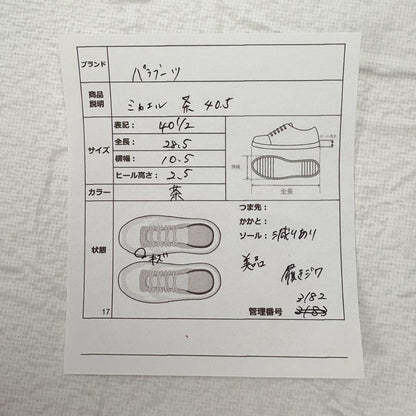 ブランド パラブーツ
商品説明 ミカエル 茶 40.5
サイズ
表記: 40 1/2
全長: 28.5
横幅: 10.5
ヒール高さ: 2.5
ヒール高さ
横幅
全長
カラー 茶
状態
キズ
つま先:
かかと:
ソール: 減りあり
美品
履きジワ
3182
管理番号 3183
17